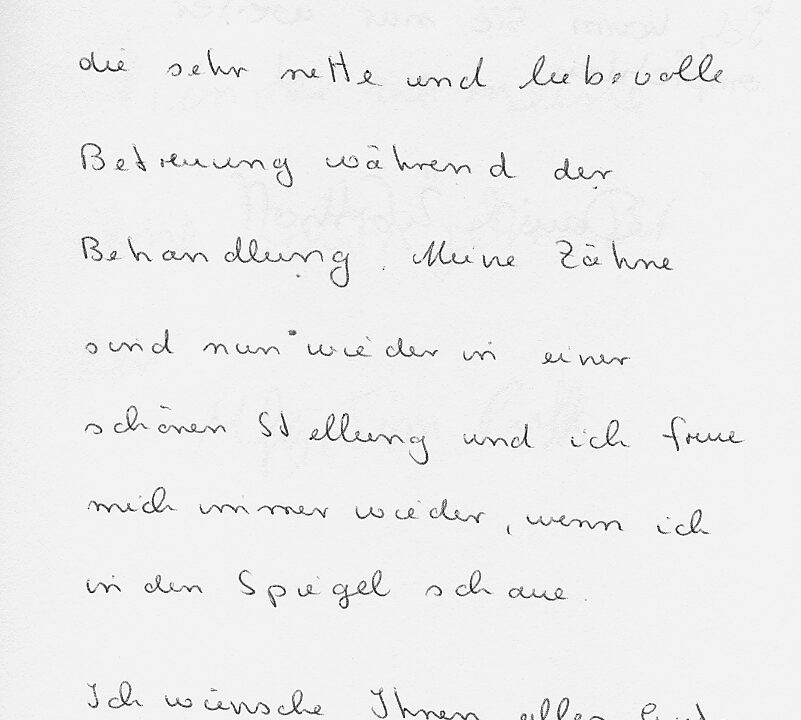 die sehr nette und liebevolle
Betreuung während der
Behandlung. Meine Zähne
sind nun wieder in einer
schönen Stellung und ich freue
mich immer wieder, wenn ich
in den Spiegel schaue.
Ich wünsche Ihnen alles